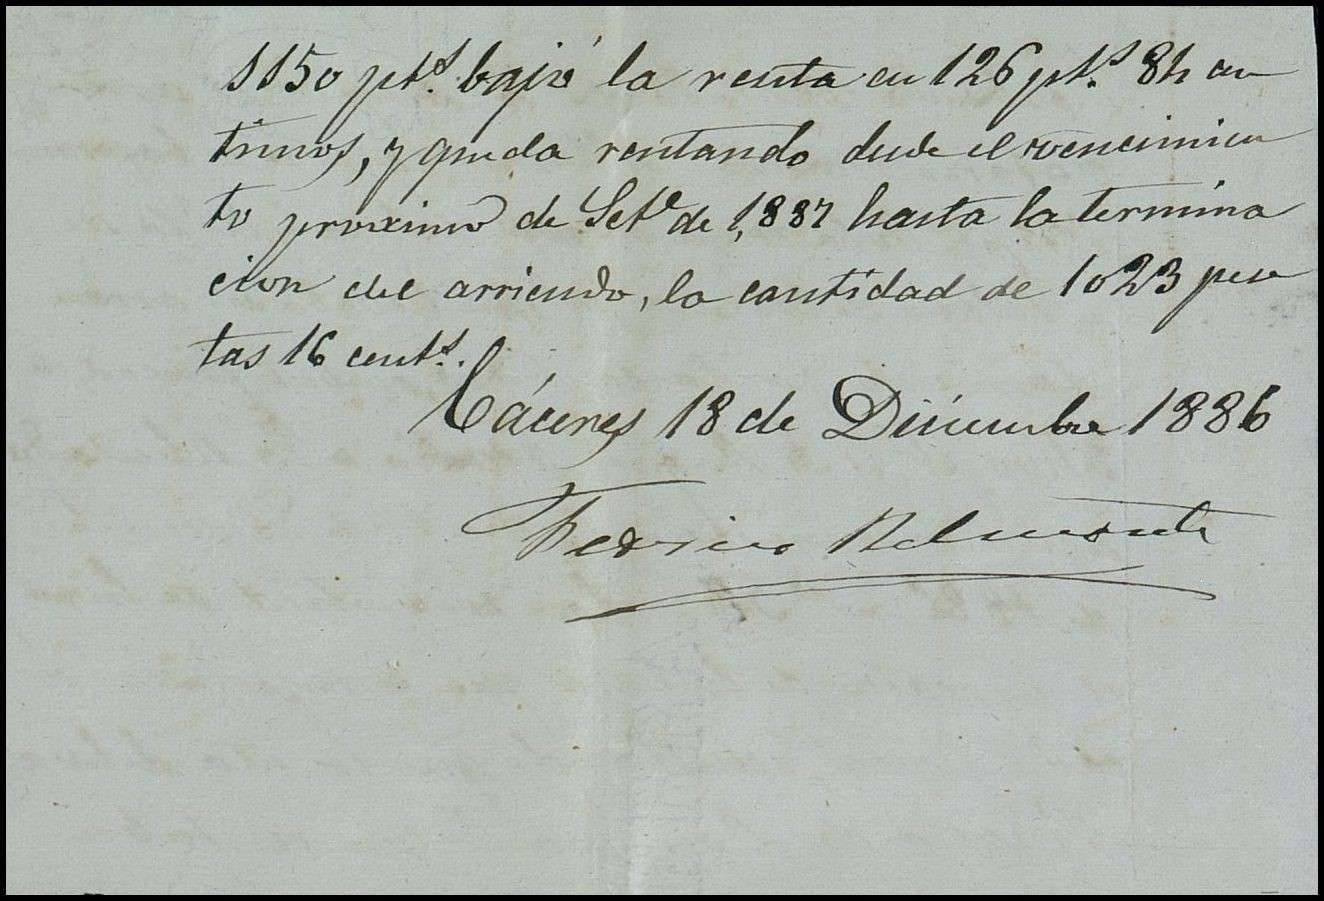 1150 pts. bajó la renta en 126 pts. 84 cen
timos, y queda rentando desde el vencimien
to proximo de Set.e de 1,887 hasta la termina
cion del arriendo, la cantidad de 1023 pese
tas 16 cents.
Cáceres 18 de Diciembre 1886
Federico Belmonte